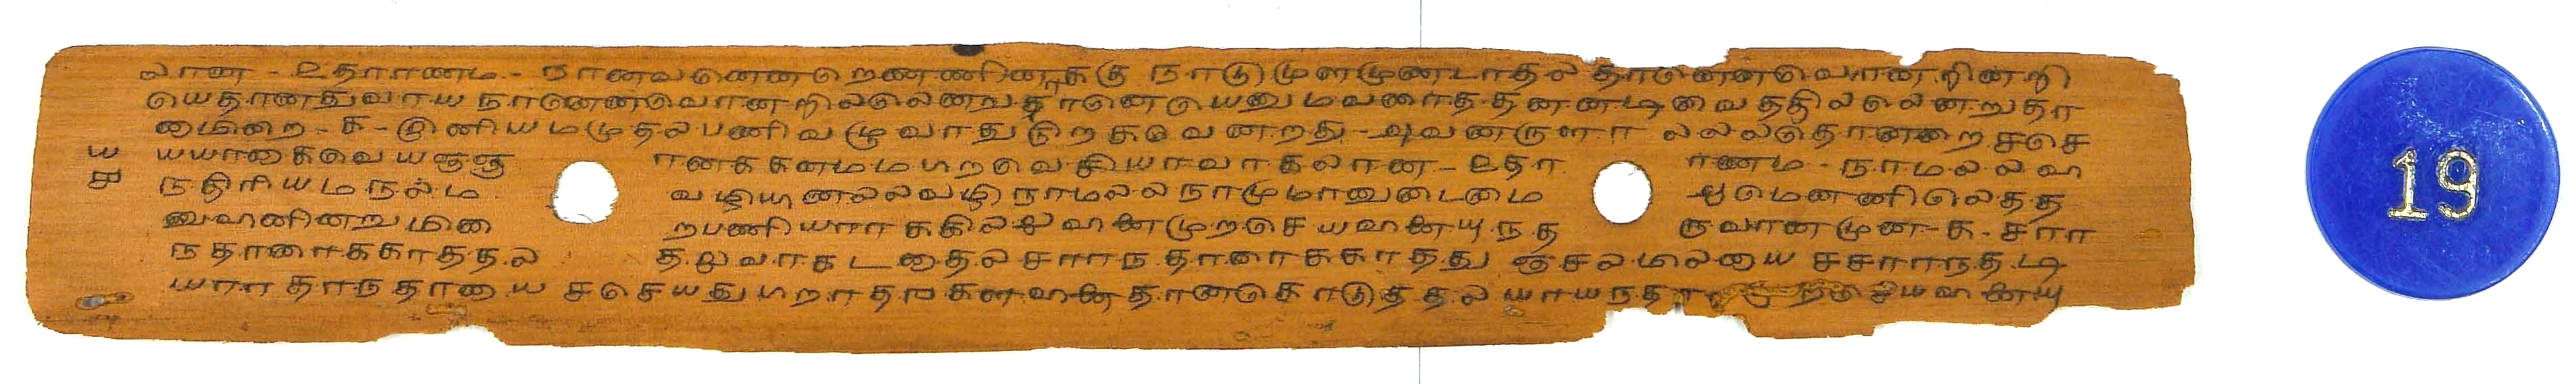 லான - உதாரணம - நானவனெனறெணணினாககு நாடுமுளமுணடாதல தானெனவொனறினறி
யெதானதுவாய நானெனவொனறிலலெனவதானெனெயெனுமவணதததனனடிவைததிலலெனறுதா
னுமினறை - க - இனியமமுதலபணிவழுவாதுநிறகவெனறது - அவனருளா லலலதொனறை சசெ
ய யயானகவெயஞஞ ானககனமமமறவெசியாவாகலான - உதா ாணம - நாமலலவ
ச நதிரியமநலம வழியுணலலவழிநாமலலநாமுமானுடைமை ஆமெனணிலெதத
னுவானினறுமினை றபணியாாககிலலைவானைமுறசெயவானையுநத ருவானமுன - க - சாா
நதாரைககாததல தலைவாகடனதலசாாநதாரைககாதது ஞசலமிலையை சசாாநதடி
யாாதாநதானாய சசெயதுமறாதாஙகளவானைதானகொடுததலயாயநதா செயவானையு
19